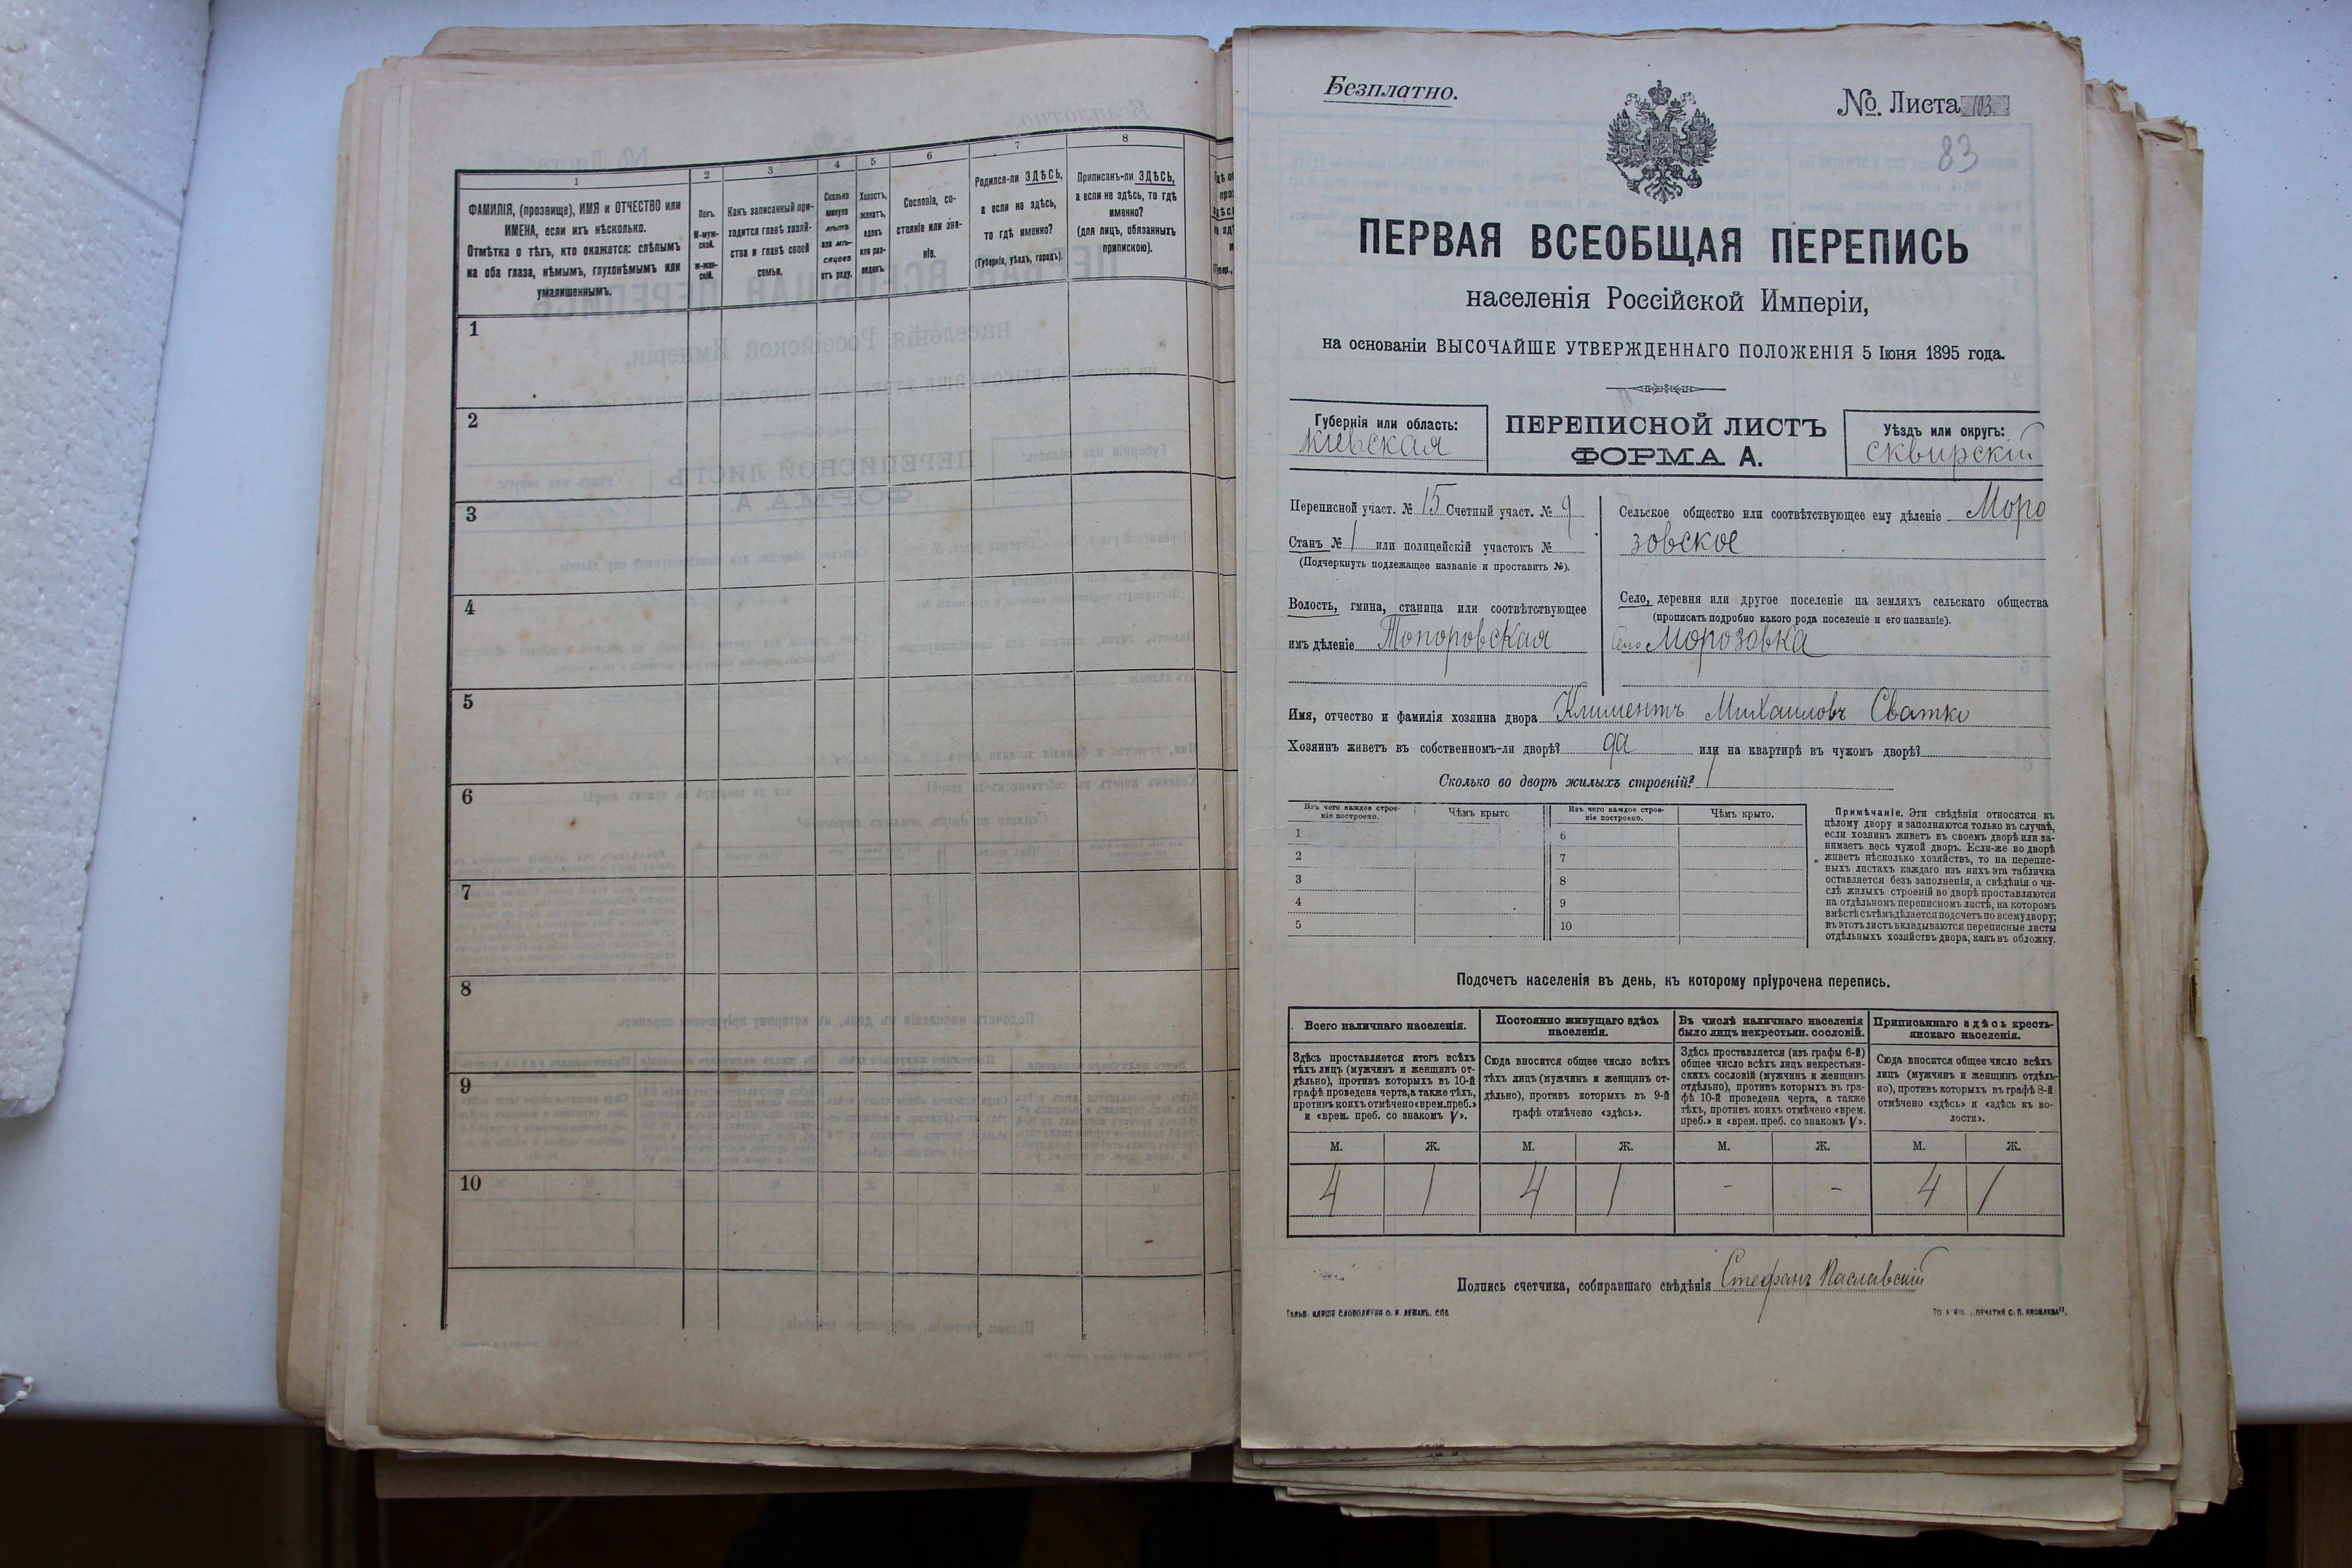 1
2
3
4
5
6
7
8
ФАМИЛІЯ, (прозвище), ИМЯ и ОТЧЕСТВО или
ИМЕНА, если ихъ нѣсколько.
Отмѣтка о тѣхъ, кто окажется: слѣпымъ
на оба глаза, нѣмымъ, глухонѣмымъ или
умалишеннымъ.
Полъ.
М-муж-
ской.
Ж-жен-
скій.
Какъ записанный при-
ходится главѣ хозяй-
ства и главѣ своей
семьи.
Сколько
минуло
лѣтъ
или мѣ-
сяцевъ
отъ роду.
Холостъ,
женатъ,
вдовъ
или раз-
веденъ.
Сословіе, со-
стояніе или зва-
ніе.
Родился-ли ЗДѢСЬ,
а если не здѣсь,
то гдѣ именно?
(Губернія, уѣздъ, городъ).
Приписанъ-ли ЗДѢСЬ,
а если не здѣсь, то гдѣ
именно?
(для лицъ, обязанныхъ
припискою).
1
2
3
4
5
6
7
8
9
10
Безплатно.
№. Листа 103
83
ПЕРВАЯ ВСЕОБЩАЯ ПЕРЕПИСЬ
населенія Россійской Имперіи,
на основаніи ВЫСОЧАЙШЕ УТВЕРЖДЕННАГО ПОЛОЖЕНІЯ 5 Іюня 1895 года.
Губернія или область:
Кіевская
ПЕРЕПИСНОЙ ЛИСТЪ
ФОРМА А.
Уѣздъ или округъ:
сквирскій
Переписной участ. № 15 Счетный участ. № 9
Станъ № 1 или полицейскій участокъ №
(Подчеркнуть подлежащее названіе и проставить №).
Волость, гмина, станица или соотвѣтствующее
имъ дѣленіе Топоровская
Сельское общество или соотвѣтствующее ему дѣленіе Моро
зовское
Село, деревня или другое поселеніе на земляхъ сельскаго общества
(прописать подробно какого рода поселеніе и его названіе).
село Морозовка
Имя, отчество и фамилія хозяина двора Климентъ Михаиловъ Сватко
Хозяинъ живетъ въ собственномъ-ли дворѣ? да или на квартирѣ въ чужомъ дворѣ?
Сколько во дворѣ жилыхъ строеній? 1
Изъ чего каждое строе-
ніе построено.
Чѣмъ крыто
Изъ чего каждое строе-
ніе построено.
Чѣмъ крыто.
1
2
3
4
5
6
7
8
9
10
Примѣчаніе. Эти свѣдѣнія относятся къ
цѣлому двору и заполняются только въ случаѣ,
если хозяинъ живетъ въ своемъ дворѣ или за-
нимаетъ весь чужой дворъ. Если-же во дворѣ
живетъ нѣсколько хозяйствъ, то на перепис-
ныхъ листахъ каждаго изъ нихъ эта табличка
оставляется безъ заполненія, а свѣдѣнія о чи-
слѣ жилыхъ строеній во дворѣ проставляются
на отдѣльномъ переписномъ листѣ, на которомъ
вмѣстѣ съ тѣмъ дѣлается подсчетъ по всему двору;
въ этотъ листъ вкладываются переписные листы
отдѣльныхъ хозяйствъ двора, какъ въ обложку.
Подсчетъ населенія въ день, къ которому пріурочена перепись.
Всего наличнаго населенія.
Постоянно живущаго здѣсь
населенія.
Въ числѣ наличнаго населенія
было лицъ некрестьян. сословій.
Приписаннаго здѣсь кресть-
янскаго населенія.
Здѣсь проставляется итогъ всѣхъ
тѣхъ лицъ (мужчинъ и женщинъ от-
дѣльно), противъ которыхъ въ 10-й
графѣ проведена черта, а также тѣхъ,
противъ коихъ отмѣчено «врем. преб.»
и «врем. преб. со знакомъ V».
Сюда вносится общее число всѣхъ
тѣхъ лицъ (мужчинъ и женщинъ от-
дѣльно), противъ которыхъ въ 9-й
графѣ отмѣчено «здѣсь».
Здѣсь проставляется (изъ графы 6-й)
общее число всѣхъ лицъ некрестьян-
скихъ сословій (мужчинъ и женщинъ
отдѣльно), противъ которыхъ въ гра-
фѣ 10-й проведена черта, а также
тѣхъ, противъ коихъ отмѣчено «врем.
преб.» и «врем. преб. со знакомъ V».
Сюда вносится общее число всѣхъ
лицъ (мужчинъ и женщинъ отдѣль-
но), противъ которыхъ въ графѣ 8-й
отмѣчено «здѣсь» и «здѣсь къ во-
лости».
М. Ж. М. Ж. М. Ж. М. Ж.
4 1 4 1 - - 4 1
Подпись счетчика, собиравшаго свѣдѣнія Стефанъ Паславскій